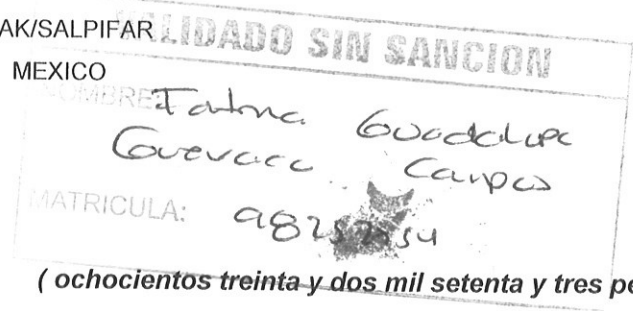 AK/SALPIFAR
LIDADO SIN SANCION
MEXICO
NOMBRE: Fatima Guadalupe
Guevara Campos
MATRICULA:
( ochocientos treinta y dos mil setenta y tres pe